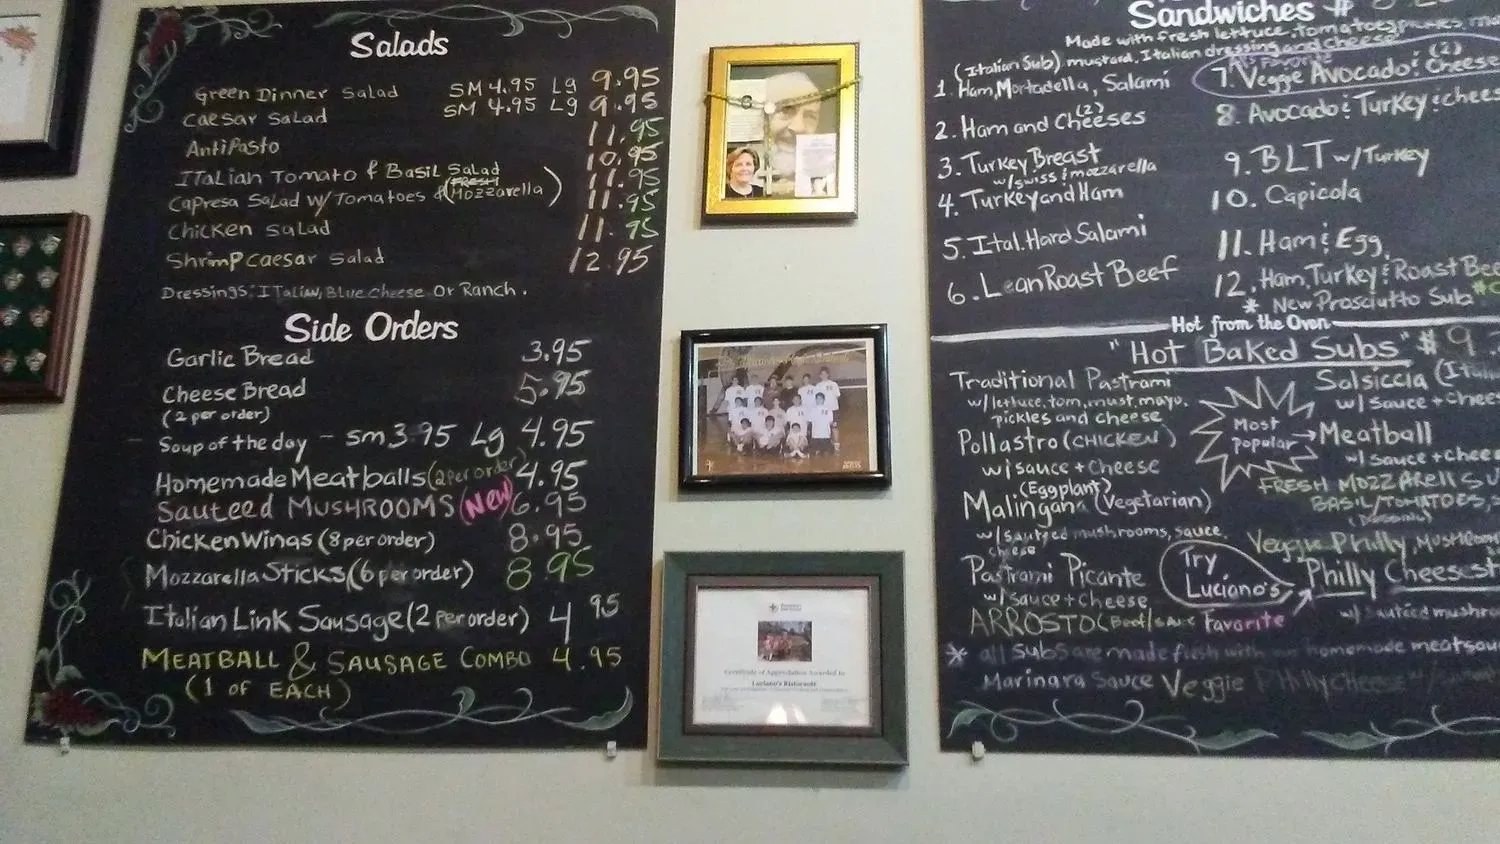 Salads
Green Dinner Salad SM 4.95 Lg 9.95
Caesar Salad SM 4.95 Lg 9.95
AntiPasto 11.95
Italian Tomato & Basil Salad 10.95
Capresa Salad w/Tomatoes & (FRESH Mozzarella) 11.95
11.95
Chicken Salad 11.95
Shrimp Caesar Salad 12.95
Dressings: Italian, Blue Cheese Or Ranch.
Side Orders
Garlic Bread 3.95
Cheese Bread 5.95
(2 per order)
Soup of the day - sm 3.95 Lg 4.95
Homemade Meatballs (2 per order) 4.95
Sauteed MUSHROOMS (New) 6.95
Chicken Wings (8 per order) 8.95
Mozzarella Sticks (6 per order) 8.95
Italian Link Sausage (2 per order) 4 95
MEATBALL & SAUSAGE COMBO 4.95
(1 OF EACH)
Certificate of Appreciation Awarded to
Luciano's Ristorante
Sandwiches #
Made with fresh lettuce, tomatoes,
mustard, Italian dressing and cheese
(Italian Sub)
1. Ham, Mortadella, Salami
2. Ham and (2) Cheeses
3. Turkey Breast
w/swiss & mozzarella
4. Turkey and Ham
5. Ital. Hard Salami
6. Lean Roast Beef
7. Veggie Avocado & (2) Cheese
8. Avocado & Turkey & chees
9. BLT w/Turkey
10. Capicola
11. Ham & Egg
12. Ham, Turkey & Roast Bee
* New Prosciutto Sub
Hot from the Oven
"Hot Baked Subs" # 9
Traditional Pastrami
w/lettuce, tom, must, mayo,
pickles and cheese
Pollastro (CHICKEN)
w/sauce + Cheese
(Eggplant)
Malingana (Vegetarian)
w/sautéed mushrooms, sauce,
cheese
Pastrami Picante
w/sauce + Cheese
ARROSTO (Beef/
Most popular
Solsiccia (Ita
w/ Sauce + Chees
Meatball
w/ Sauce + chee
FRESH MOZZARELL SU
BASIL/TOMATOES,
Veggie Philly, MUSHROOM
Try Luciano's Favorite
Philly Cheesest
w/ Sautéed mushro
* all Subs are made fresh with our homemade meatsau
Marinara Sauce Veggie Philly Cheese